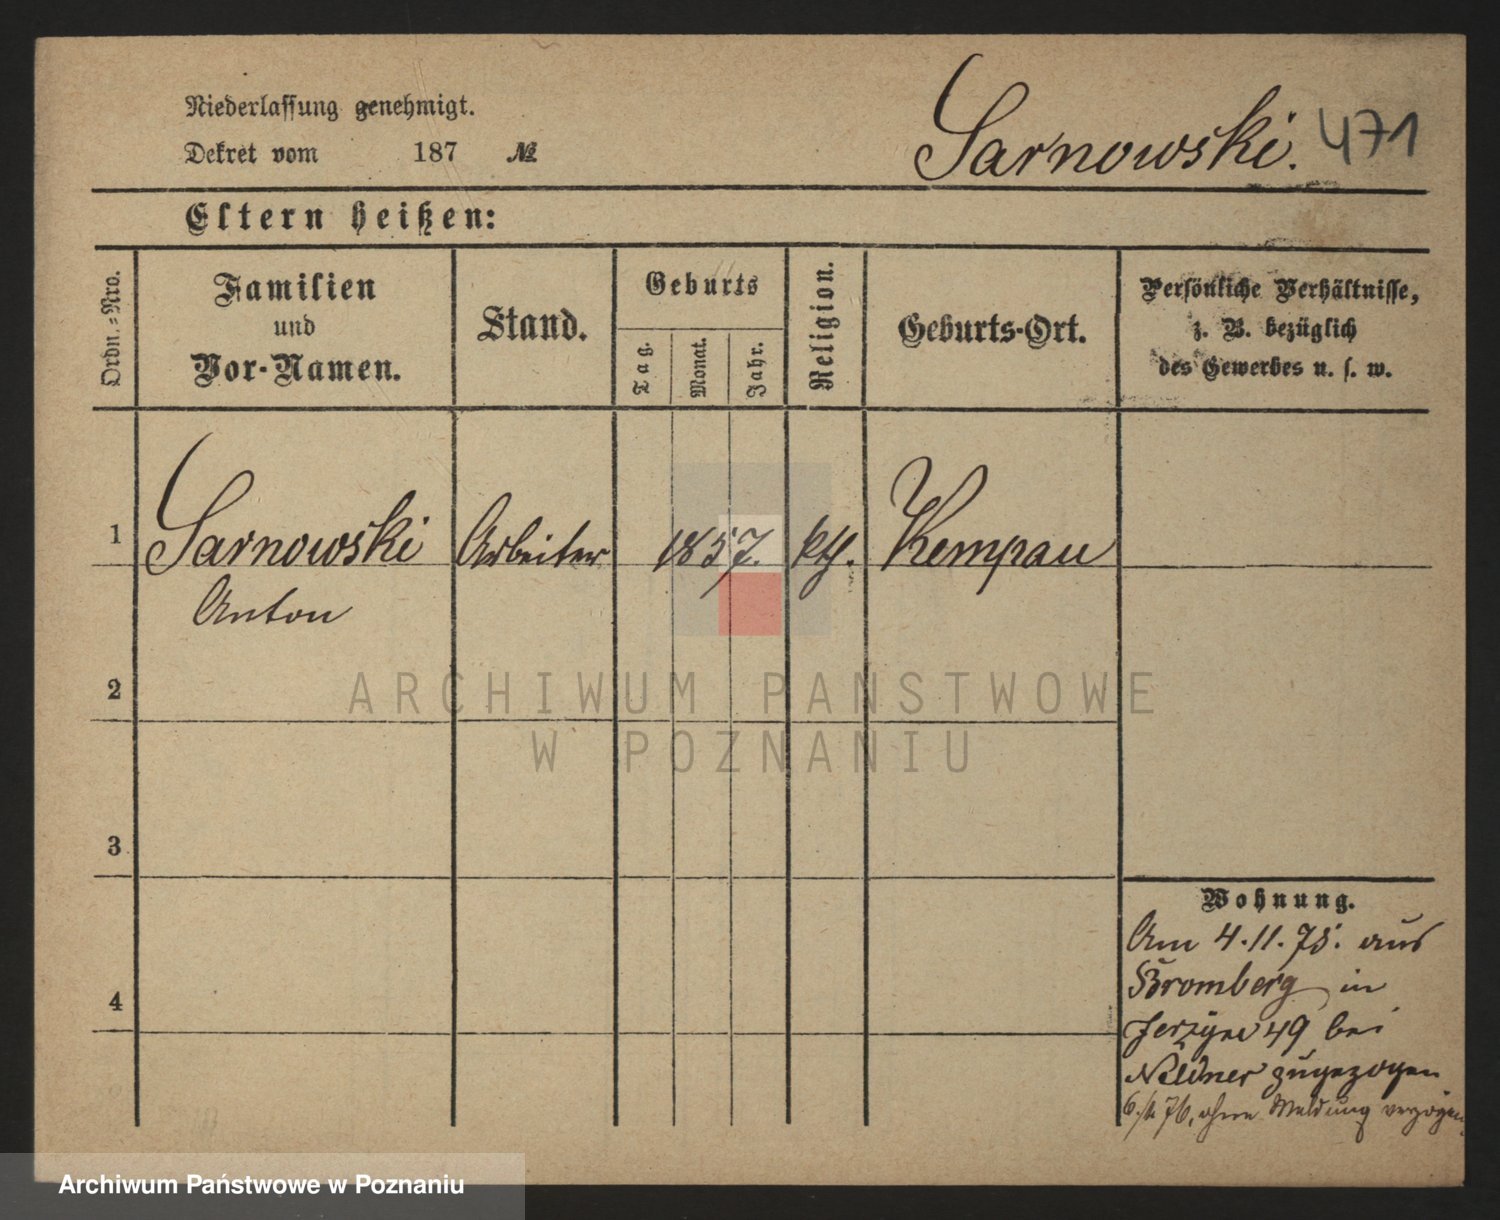 Niederlassung genehmigt.
Dekret vom 187 №
Sarnowski. 471
Eltern heißen:
Ordn.=Nro.
Familien
und
Vor-Namen.
Stand.
Geburts
Tag.
Monat.
Jahr.
Religion.
Geburts-Ort.
Persönliche Verhältnisse,
z. B. bezüglich
des Gewerbes u. s. w.
1 Sarnowski Arbeiter 1857. kth. Kempau
Anton
2
3
4
Wohnung.
Am 4.11.75. aus
Bromberg in
49 bei
zugezogen
76, ohne Meldung verzogen.
ARCHIWUM PAŃSTWOWE
W POZNANIU
Archiwum Państwowe w Poznaniu